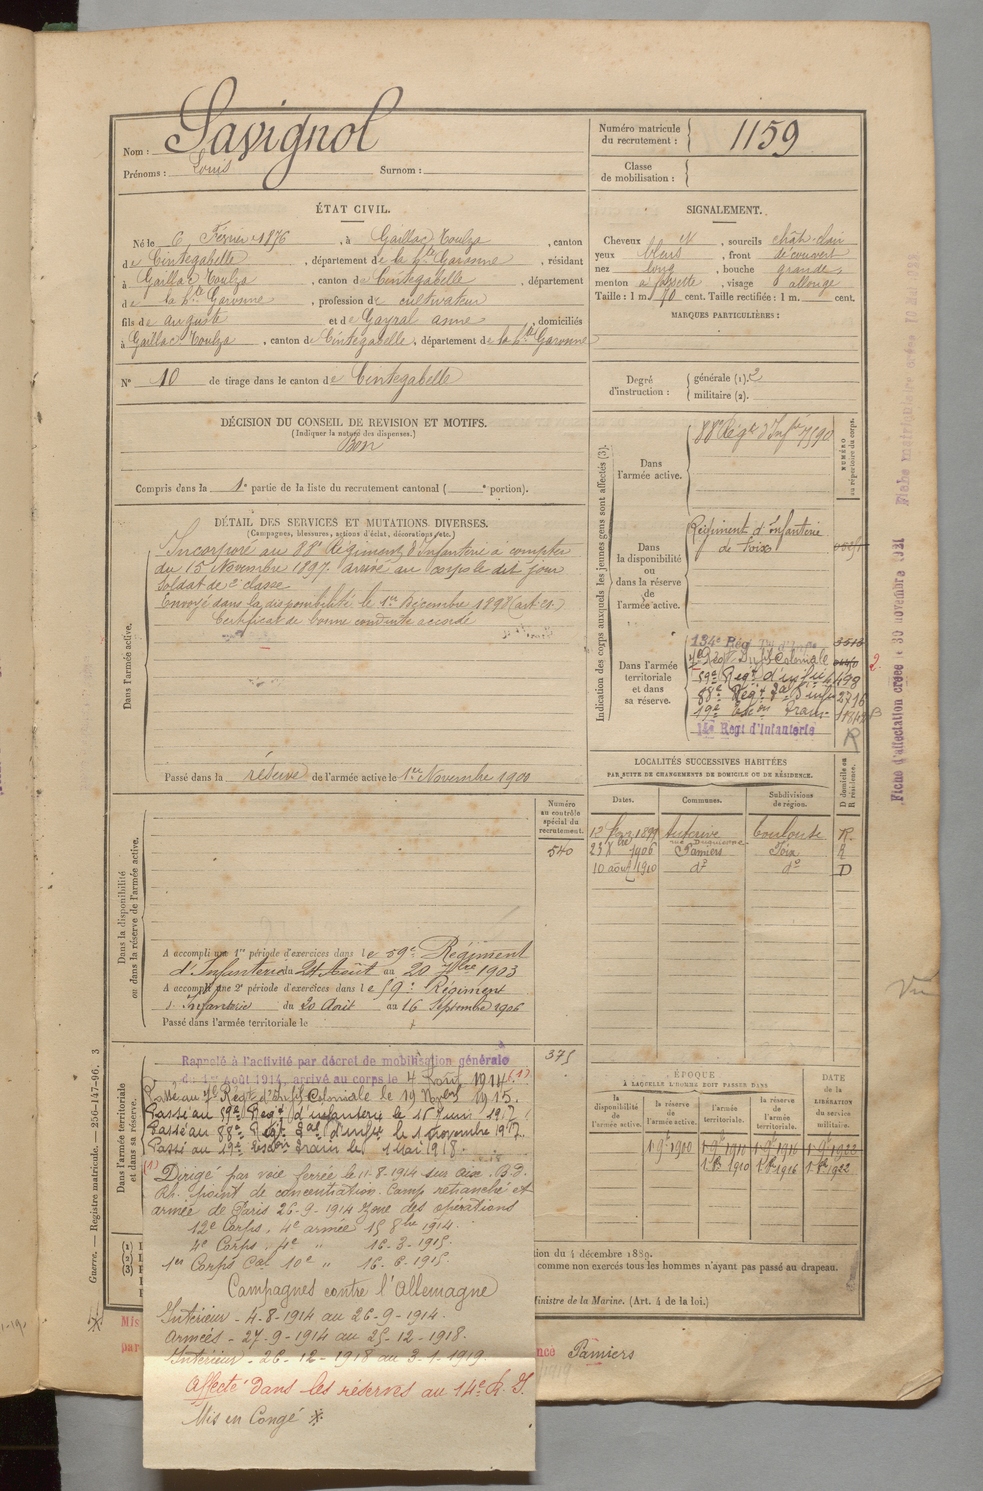 Nom : Savignol
Prénoms : Louis Surnom :
Numéro matricule du recrutement : 1159
Classe de mobilisation :
ÉTAT CIVIL.
Né le 6 Février 1876, à Gaillac Toulza, canton
de Cintegabelle, département de la Hte Garonne, résidant
à Gaillac Toulza, canton de Cintegabelle, département
de la Hte Garonne, profession de cultivateur
fils de auguste et de Gayral anne, domiciliés
à Gaillac Toulza, canton de Cintegabelle, département de la hte Garonne
SIGNALEMENT.
Cheveux et, sourcils chât-clair
yeux bleus, front découvert
nez long, bouche grande
menton à fossette, visage allongé
Taille : 1 m. 70 cent. Taille rectifiée : 1 m. cent.
MARQUES PARTICULIÈRES :
N° 10 de tirage dans le canton de Cintegabelle
Degré d'instruction : générale (1). 2
militaire (2).
DÉCISION DU CONSEIL DE REVISION ET MOTIFS.
(Indiquer la nature des dispenses.)
Bon
Compris dans la 1e partie de la liste du recrutement cantonal ( e portion).
DÉTAIL DES SERVICES ET MUTATIONS DIVERSES.
(Campagnes, blessures, actions d'éclat, décorations, etc.)
Dans l'armée active.
Incorporé au 88e Régiment d'Infanterie à compter
du 15 Novembre 1897. arrivé au corps le dit jour
Soldat de 2e classe
Envoyé dans la disponibilité le 1er Décembre 1898 (art. 21.)
Certificat de bonne conduite accordé
Passé dans la réserve de l'armée active le 1er Novembre 1900
Indication des corps auxquels les jeunes gens sont affectés (3).
NUMÉRO au répertoire du corps.
Dans l'armée active.
88e Régt d'Infie 7590
Dans la disponibilité ou dans la réserve de l'armée active.
Régiment d'infanterie
de Foix
Dans l'armée territoriale et dans sa réserve.
134e Régt 3513
7e Régt Infie Coloniale 2
59e Regt d'infie 498
88e Regt d'infie 2716
19e Esc on Train
14e Regt d'Infanterie R
LOCALITÉS SUCCESSIVES HABITÉES
PAR SUITE DE CHANGEMENTS DE DOMICILE OU DE RÉSIDENCE.
D domicile ou R résidence.
Dates. Communes. Subdivisions de région.
1899 Auterive Toulouse R
23 Xbre 1906 Pamiers Foix R
10 août 1910 do do D
Dans la disponibilité ou dans la réserve de l'armée active.
Numéro au contrôle spécial du recrutement.
540
A accompli une 1re période d'exercices dans le 59e Régiment
d'Infanterie du 24 Août au 20 7bre 1903
A accompli une 2e période d'exercices dans le 59e Régiment
d'Infanterie du 20 Août au 16 Septembre 1906
Passé dans l'armée territoriale le
375
Dans l'armée territoriale et dans sa réserve.
Rappelé à l'activité par décret de mobilisation générale
du 1er août 1914, arrivé au corps le 4 Août 1914 (1)
Passé au 7e Régt d'Infie Coloniale le 19 Novbre 1915.
Passé au 59e Regt d'infanterie le 15 Juin 1917
Passé au 88e Regt d'infie le 1 novembre 1917.
Passé au 19e Escon Train le 1 Mai 1918.
(1) Dirigé par voie ferrée le 11-8-1914 sur Aix. B.D.
Rh. point de concentration. Camp retranché et
armée de Paris 26-9-1914 Zone des opérations
12e Corps. 4e armée 15 8bre 1914.
4e Corps. 4e " 16-3-1915.
1er Corps Cal 10e " 16-6-1915.
Campagnes contre l'Allemagne
Intérieur - 4-8-1914 au 26-9-1914.
Armées - 27-9-1914 au 25-12-1918.
Intérieur - 26-12-1918 au 3-1-1919.
Affecté dans les réserves au 14e R. I.
Mis en Congé *
ÉPOQUE
À LAQUELLE L'HOMME DOIT PASSER DANS
DATE de la LIBÉRATION du service militaire.
la disponibilité de l'armée active. la réserve de l'armée active. l'armée territoriale. la réserve de l'armée territoriale.
1 9bre 1900 1 9bre 1910 1 9bre 1916 1 9bre 1922
1 Xbre 1910 1 Xbre 1916 1 Xbre 1922
(1)
(2)
(3)
tion du 4 décembre 1889.
comme non exercés tous les hommes n'ayant pas passé au drapeau.
Ministre de la Marine. (Art. 4 de la loi.)
Mis
par
nce Pamiers
Guerre. — Registre matricule. — 256-147-96. 3
Fiche matricule créée 10 Mars
Fiche d'affectation créée le 30 novembre 1931
Vu